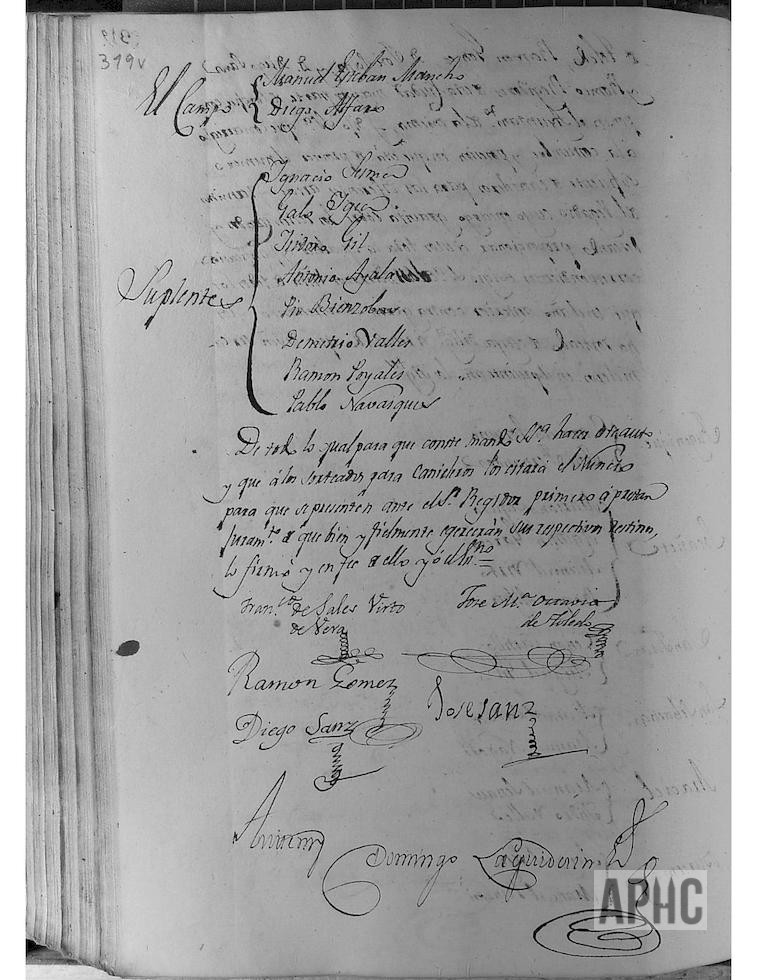 319v
El Campo { Manuel Esteban Mancho
Diego Alfaro
Suplentes { Ignacio
Galo
Isidoro Gil
Antonio Ayala
Pio Bienzobas
Demetrio Valles
Ramon Poyales
Pablo Navasques
De todo lo qual para que conste mandó Sª. hacer este auto
y que á los sorteados para Canideros los citará el Nuncio
para que se presenten ante el Sr. Regidor primero á prestar
Juramto. de que bien y fielmente egerceran sus respectivos destinos,
lo firmó y en fe de ello yo el Essno.
Franco. de Sales Virto
de Vera
Jose Ma. Octavio
de Toledo
Ramon Gomez
Jose Sanz
Diego Sanz
Ante mi
Domingo
APHC